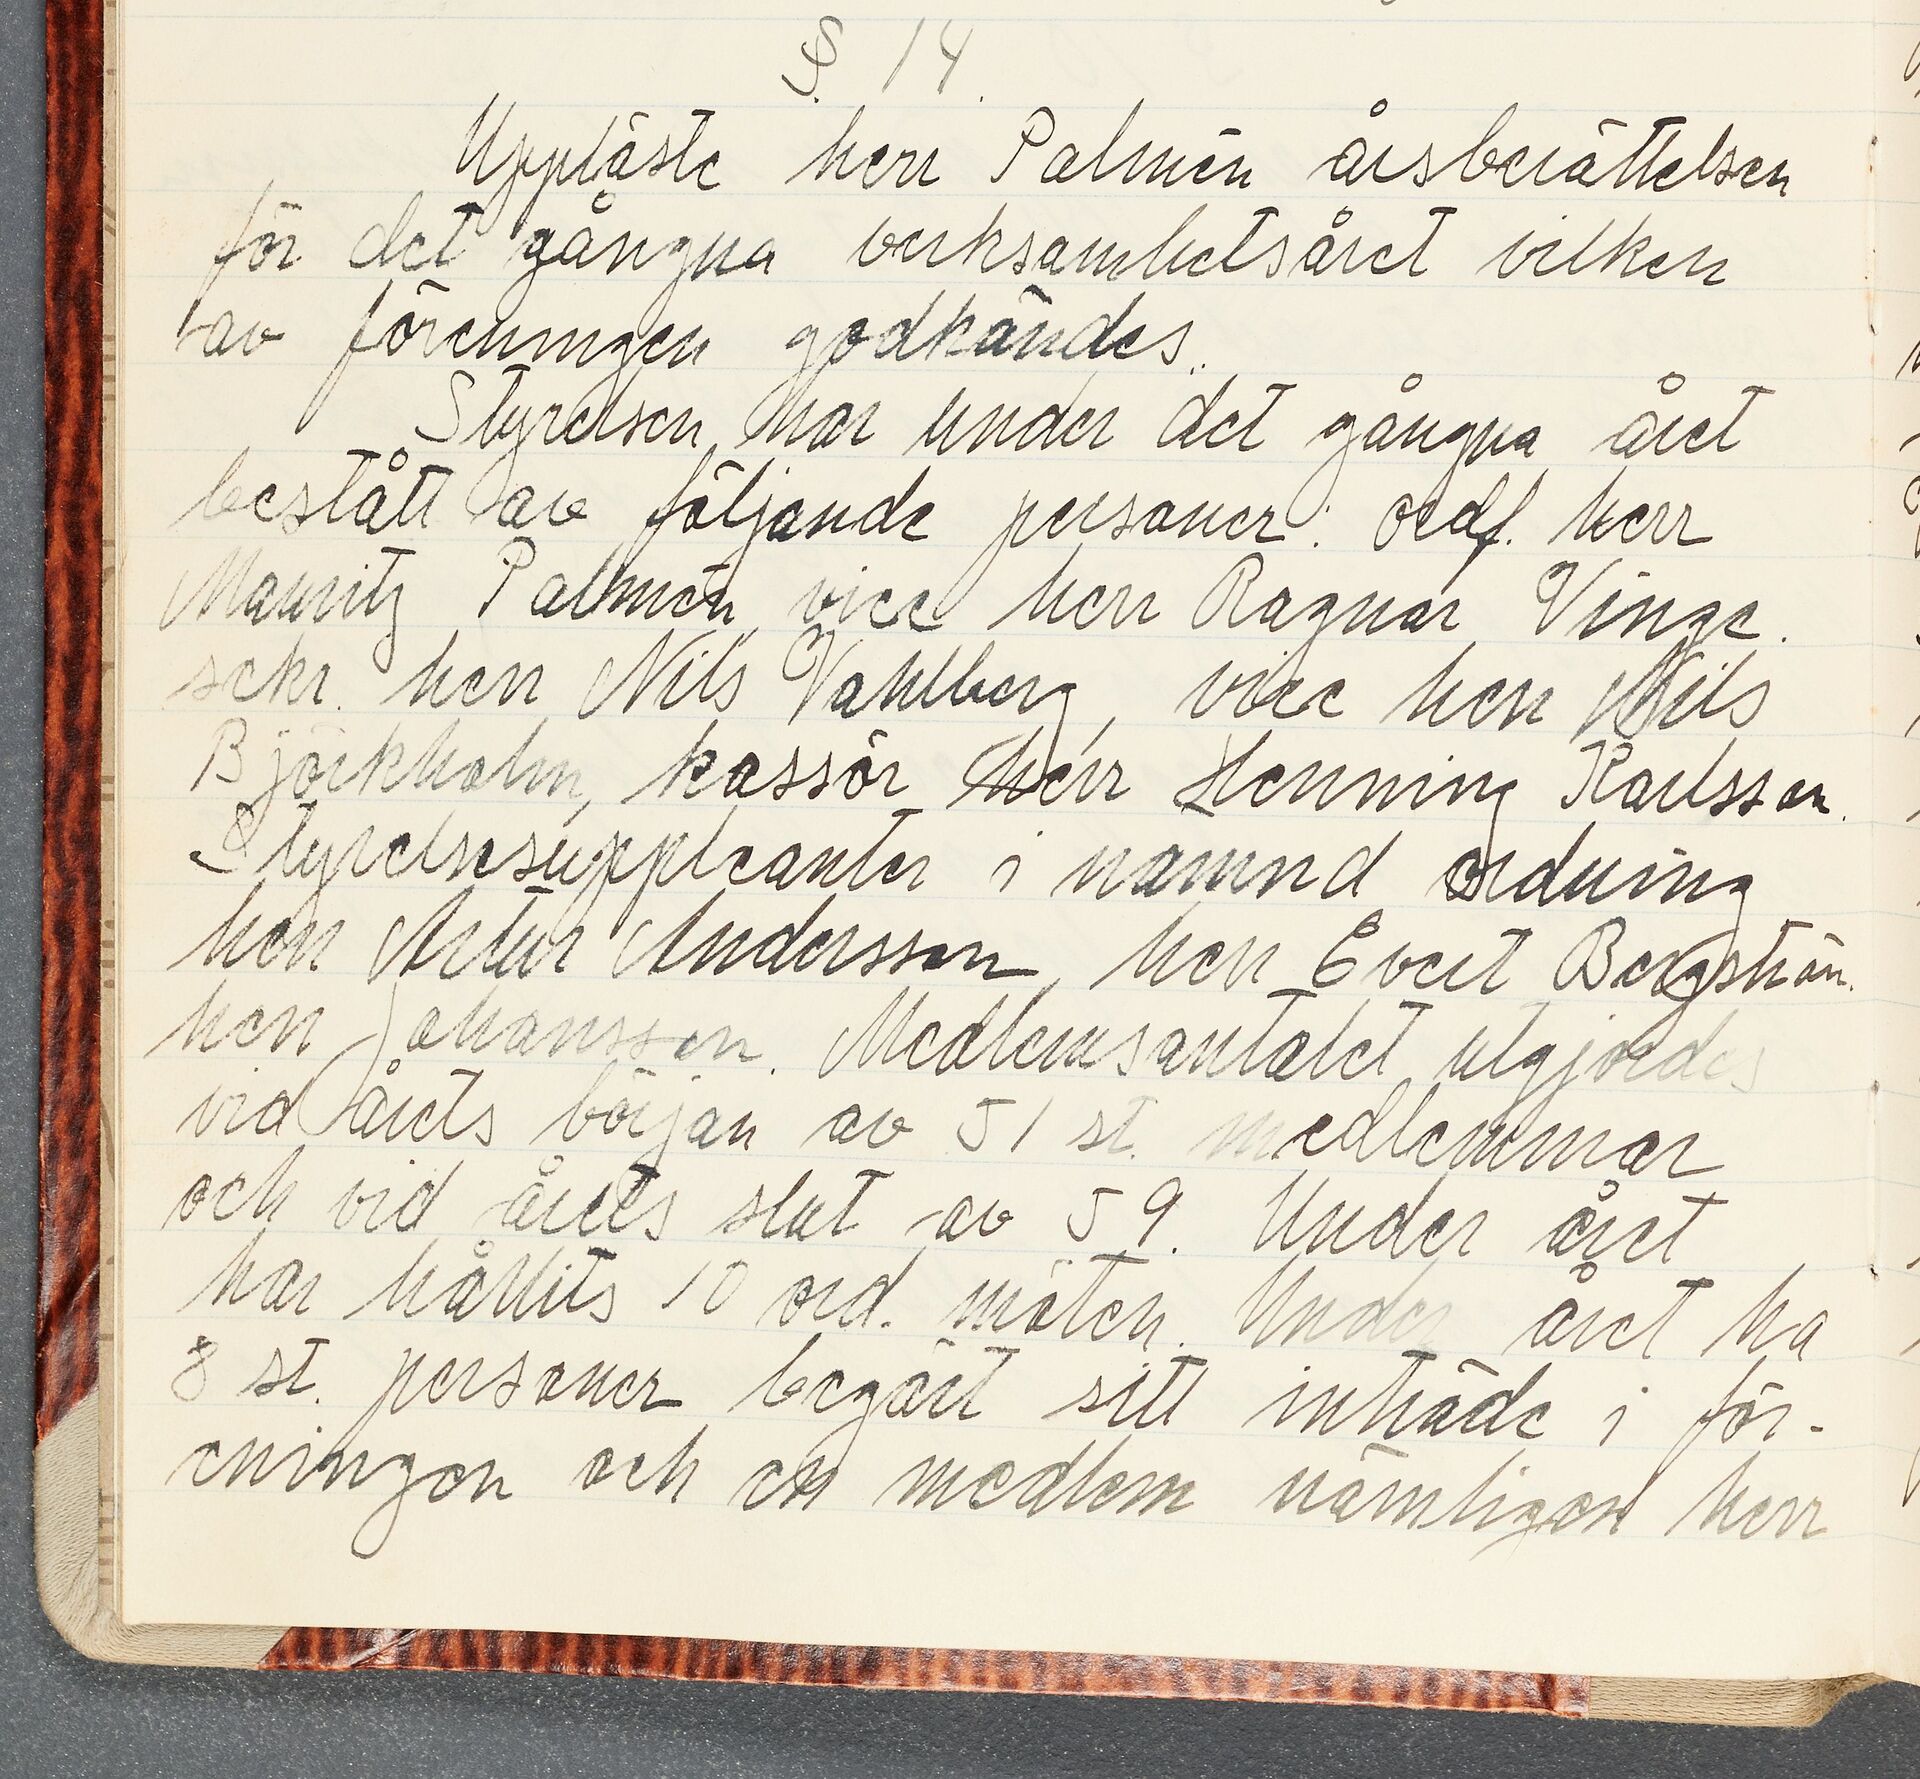 § 14.
Uppläste herr Palmén årsberättelsen
för det gångna verksamhetsåret vilken
av föreningen godkändes.
Styrelsen har under det gångna året
bestått av följande personer: ordf. herr
Mauritz Palmén, vice herr Ragnar Vinge.
sekr. herr Nils Vahlberg, vice herr Nils
Björkholm, kassör herr Henning Karlsson.
Styrelsesuppleanter i nämnd ordning
herr Artur Andersson, herr Evert Bergström.
herr Johansson. Medlemsantalet utgjordes
vid årets början av 51 st. medlemmar
och vid årets slut av 59. Under året
har hållits 10 ord. möten. Under året ha
8 st. personer begärt sitt inträde i för-
eningen och en medlem nämligen herr